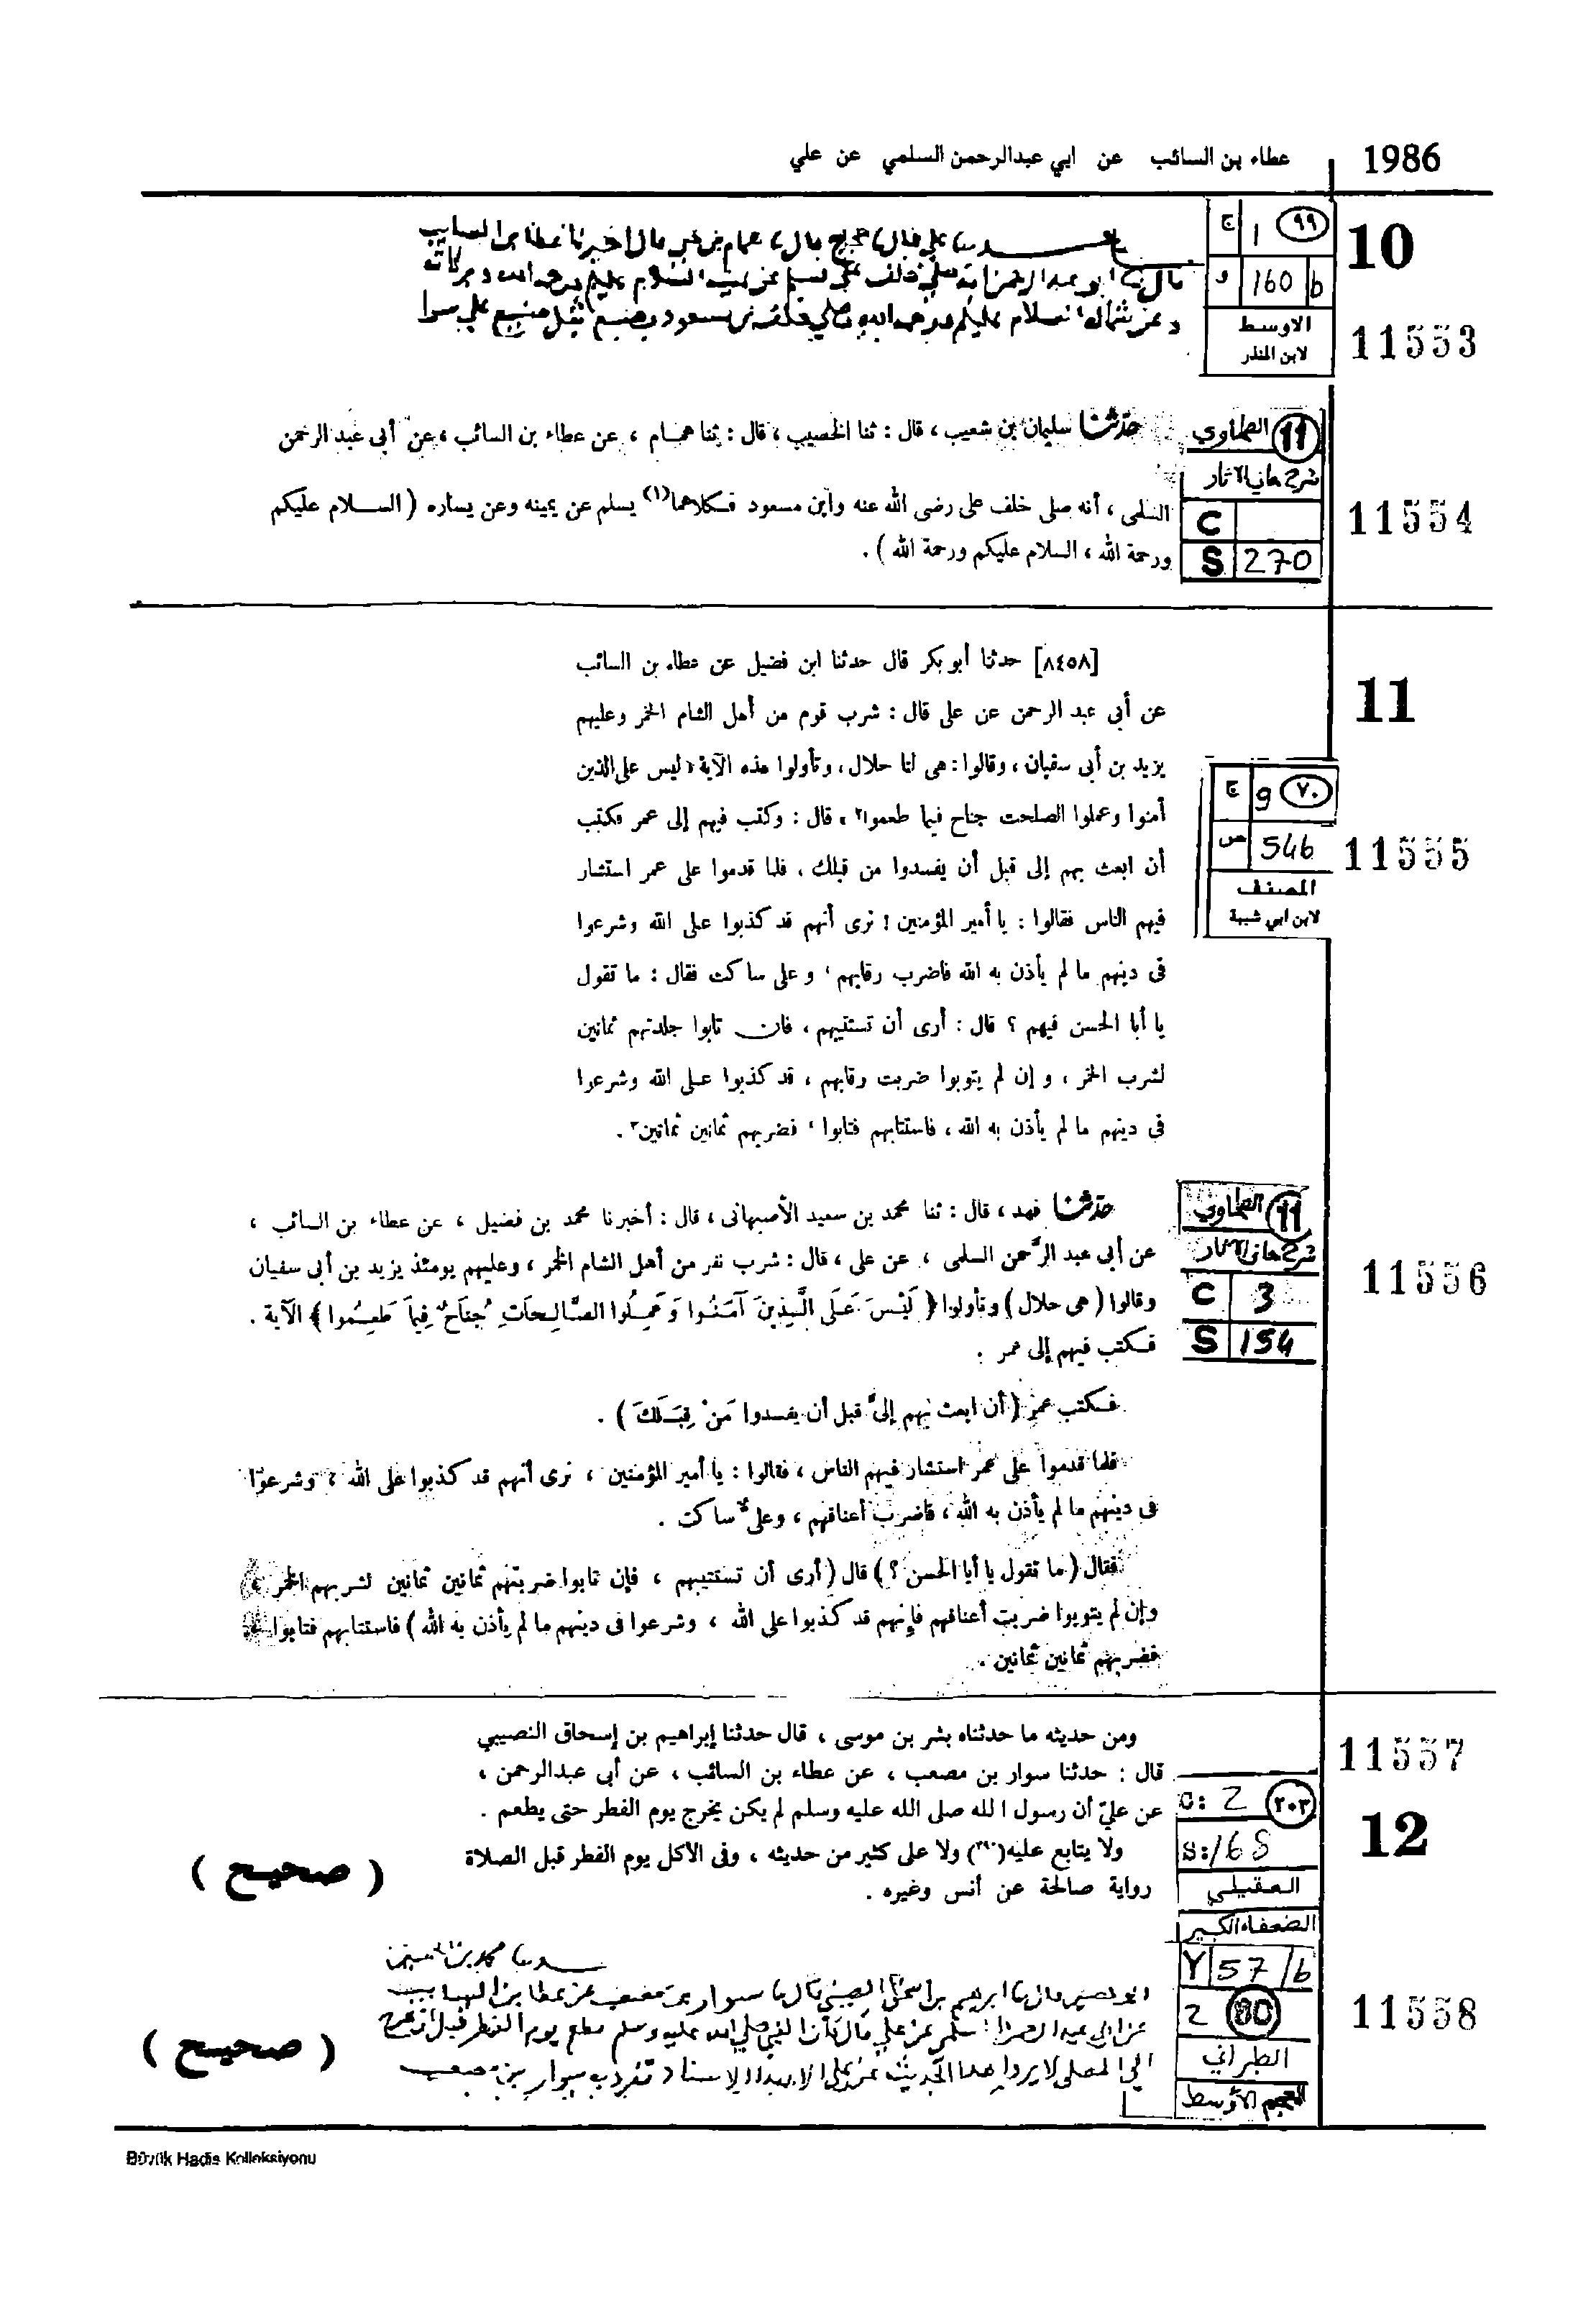 1986
عطاء بن السائب عن ابي عبدالرحمن السلمي عن علي
10
ج 1 ٩٩
و 160 b
الاوسط
لابن المنذر
11553
حدثنا علي قال ثنا حجاج قال ثنا همام بن يحيى قال اخبرنا عطا بن السايب
قال ثنا ابو عبد الرحمن انه صلى خلف علي فسلم عن يمينه السلام عليكم ورحمة الله وبركاته
وعن شماله السلام عليكم ورحمة الله وصلى خلف بن مسعود يصنع مثل صنيع علي سوا
11
الطحاوي
شرح معاني الآثار
C
S 270
11554
حدثنا سليمان بن شعيب ، قال : ثنا الخصيب ، قال : ثنا همام ، عن عطاء بن السائب ، عن أبى عبد الرحمن
السلمى ، أنه صلى خلف على رضى الله عنه وابن مسعود فكلاهما(١) يسلم عن يمينه وعن يساره ( السلام عليكم
ورحمة الله ، السلام عليكم ورحمة الله ) .
11
[٨٤٥٨] حدثنا أبو بكر قال حدثنا ابن فضيل عن عطاء بن السائب
عن أبى عبد الرحمن عن على قال : شرب قوم من أهل الشام الخمر وعليهم
يزيد بن أبى سفيان ، وقالوا : هى لنا حلال ، وتأولوا هذه الآية «ليس على الذين
آمنوا وعملوا الصلحت جناح فيما طعموا٢» قال : وكتب فيهم إلى عمر فكتب
أن ابعث بهم إلى قبل أن يفسدوا من قبلك ، فلما قدموا على عمر استشار
فيهم الناس فقالوا : يا أمير المؤمنين ! نرى أنهم قد كذبوا على الله وشرعوا
فى دينهم ما لم يأذن به الله فاضرب رقابهم ، و على ساكت فقال : ما تقول
يا أبا الحسن فيهم ؟ قال : أرى أن تستتيبهم ، فان تابوا جلدتهم ثمانين
لشرب الخمر ، و إن لم يتوبوا ضربت رقابهم ، قد كذبوا على الله وشرعوا
فى دينهم ما لم يأذن به الله ، فاستتابهم فتابوا ، فضربهم ثمانين ثمانين٣ .
ج 9 ٧٠
ص 546
المصنف
لابن ابي شيبة
11555
11
الطحاوي
شرح معاني الآثار
C 3
S 154
11556
حدثنا فهد ، قال : ثنا محمد بن سعيد الأصبهانى ، قال : أخبرنا محمد بن فضيل ، عن عطاء بن السائب ،
عن أبى عبد الرَّحمن السلمى ، عن على ، قال : شرب نفر من أهل الشام الخمر ، وعليهم يومئذ يزيد بن أبى سفيان
وقالوا ( هى حلال ) وتأولوا ﴿ لَيْسَ عَلَى الَّذِينَ آمَنُوا وَعَمِلُوا الصَّالِحَاتِ جُنَاحٌ فِيمَا طَعِمُوا ﴾ الآية .
فكتب فيهم إلى عمر .
فكتب عمر ( أن ابعث بهم إلىَّ قبل أن يفسدوا مَنْ قِبَلَكَ ) .
فلما قدموا على عمر استشار فيهم الناس ، فقالوا : يا أمير المؤمنين ، نرى أنهم قد كذبوا على الله ، وشرعوا
فى دينهم ما لم يأذن به الله ، فاضرب أعناقهم ، وعلىٌّ ساكت .
فقال ( ما تقول يا أبا الحسن ؟ ) قال ( أرى أن تستتيبهم ، فإن تابوا ضربتهم ثمانين ثمانين لشربهم الخمر ،
وإن لم يتوبوا ضربت أعناقهم فإنهم قد كذبوا على الله ، وشرعوا فى دينهم ما لم يأذن به الله ) فاستتابهم فتابوا
فضربهم ثمانين ثمانين .
11557
12
ومن حديثه ما حدثناه بشر بن موسى ، قال حدثنا إبراهيم بن إسحاق النصيبي
قال : حدثنا سوار بن مصعب ، عن عطاء بن السائب ، عن أبى عبدالرحمن ،
عن عليّ أن رسول الله صلى الله عليه وسلم لم يكن يخرج يوم الفطر حتى يطعم .
ولا يتابع عليه(٣٩٠) ولا على كثير من حديثه ، وفى الاكل يوم الفطر قبل الصلاة
رواية صالحة عن أنس وغيره .
( صحيح )
C: 2 ٢٠٣
S:168
العقيلي
الضعفاء الكبير
Y 57/b
2 80
الطبراني
المعجم الأوسط
11558
حدثنا محمد بن الحسين
ابو حصين قال ثنا ابراهيم بن اسحق الصيني قال ثنا سوار بن مصعب عن عطا بن السايب
عن ابي عبد الرحمن السلمي عن علي قال كان النبي صلى الله عليه وسلم يطعم يوم الفطر قبل ان يخرج
الى المصلى لا يروا هذا الحديث عن علي الا بهذا الاسناد تفرد به سوار بن مصعب
( صحيح )
Büyük Hadis Kolleksiyonu